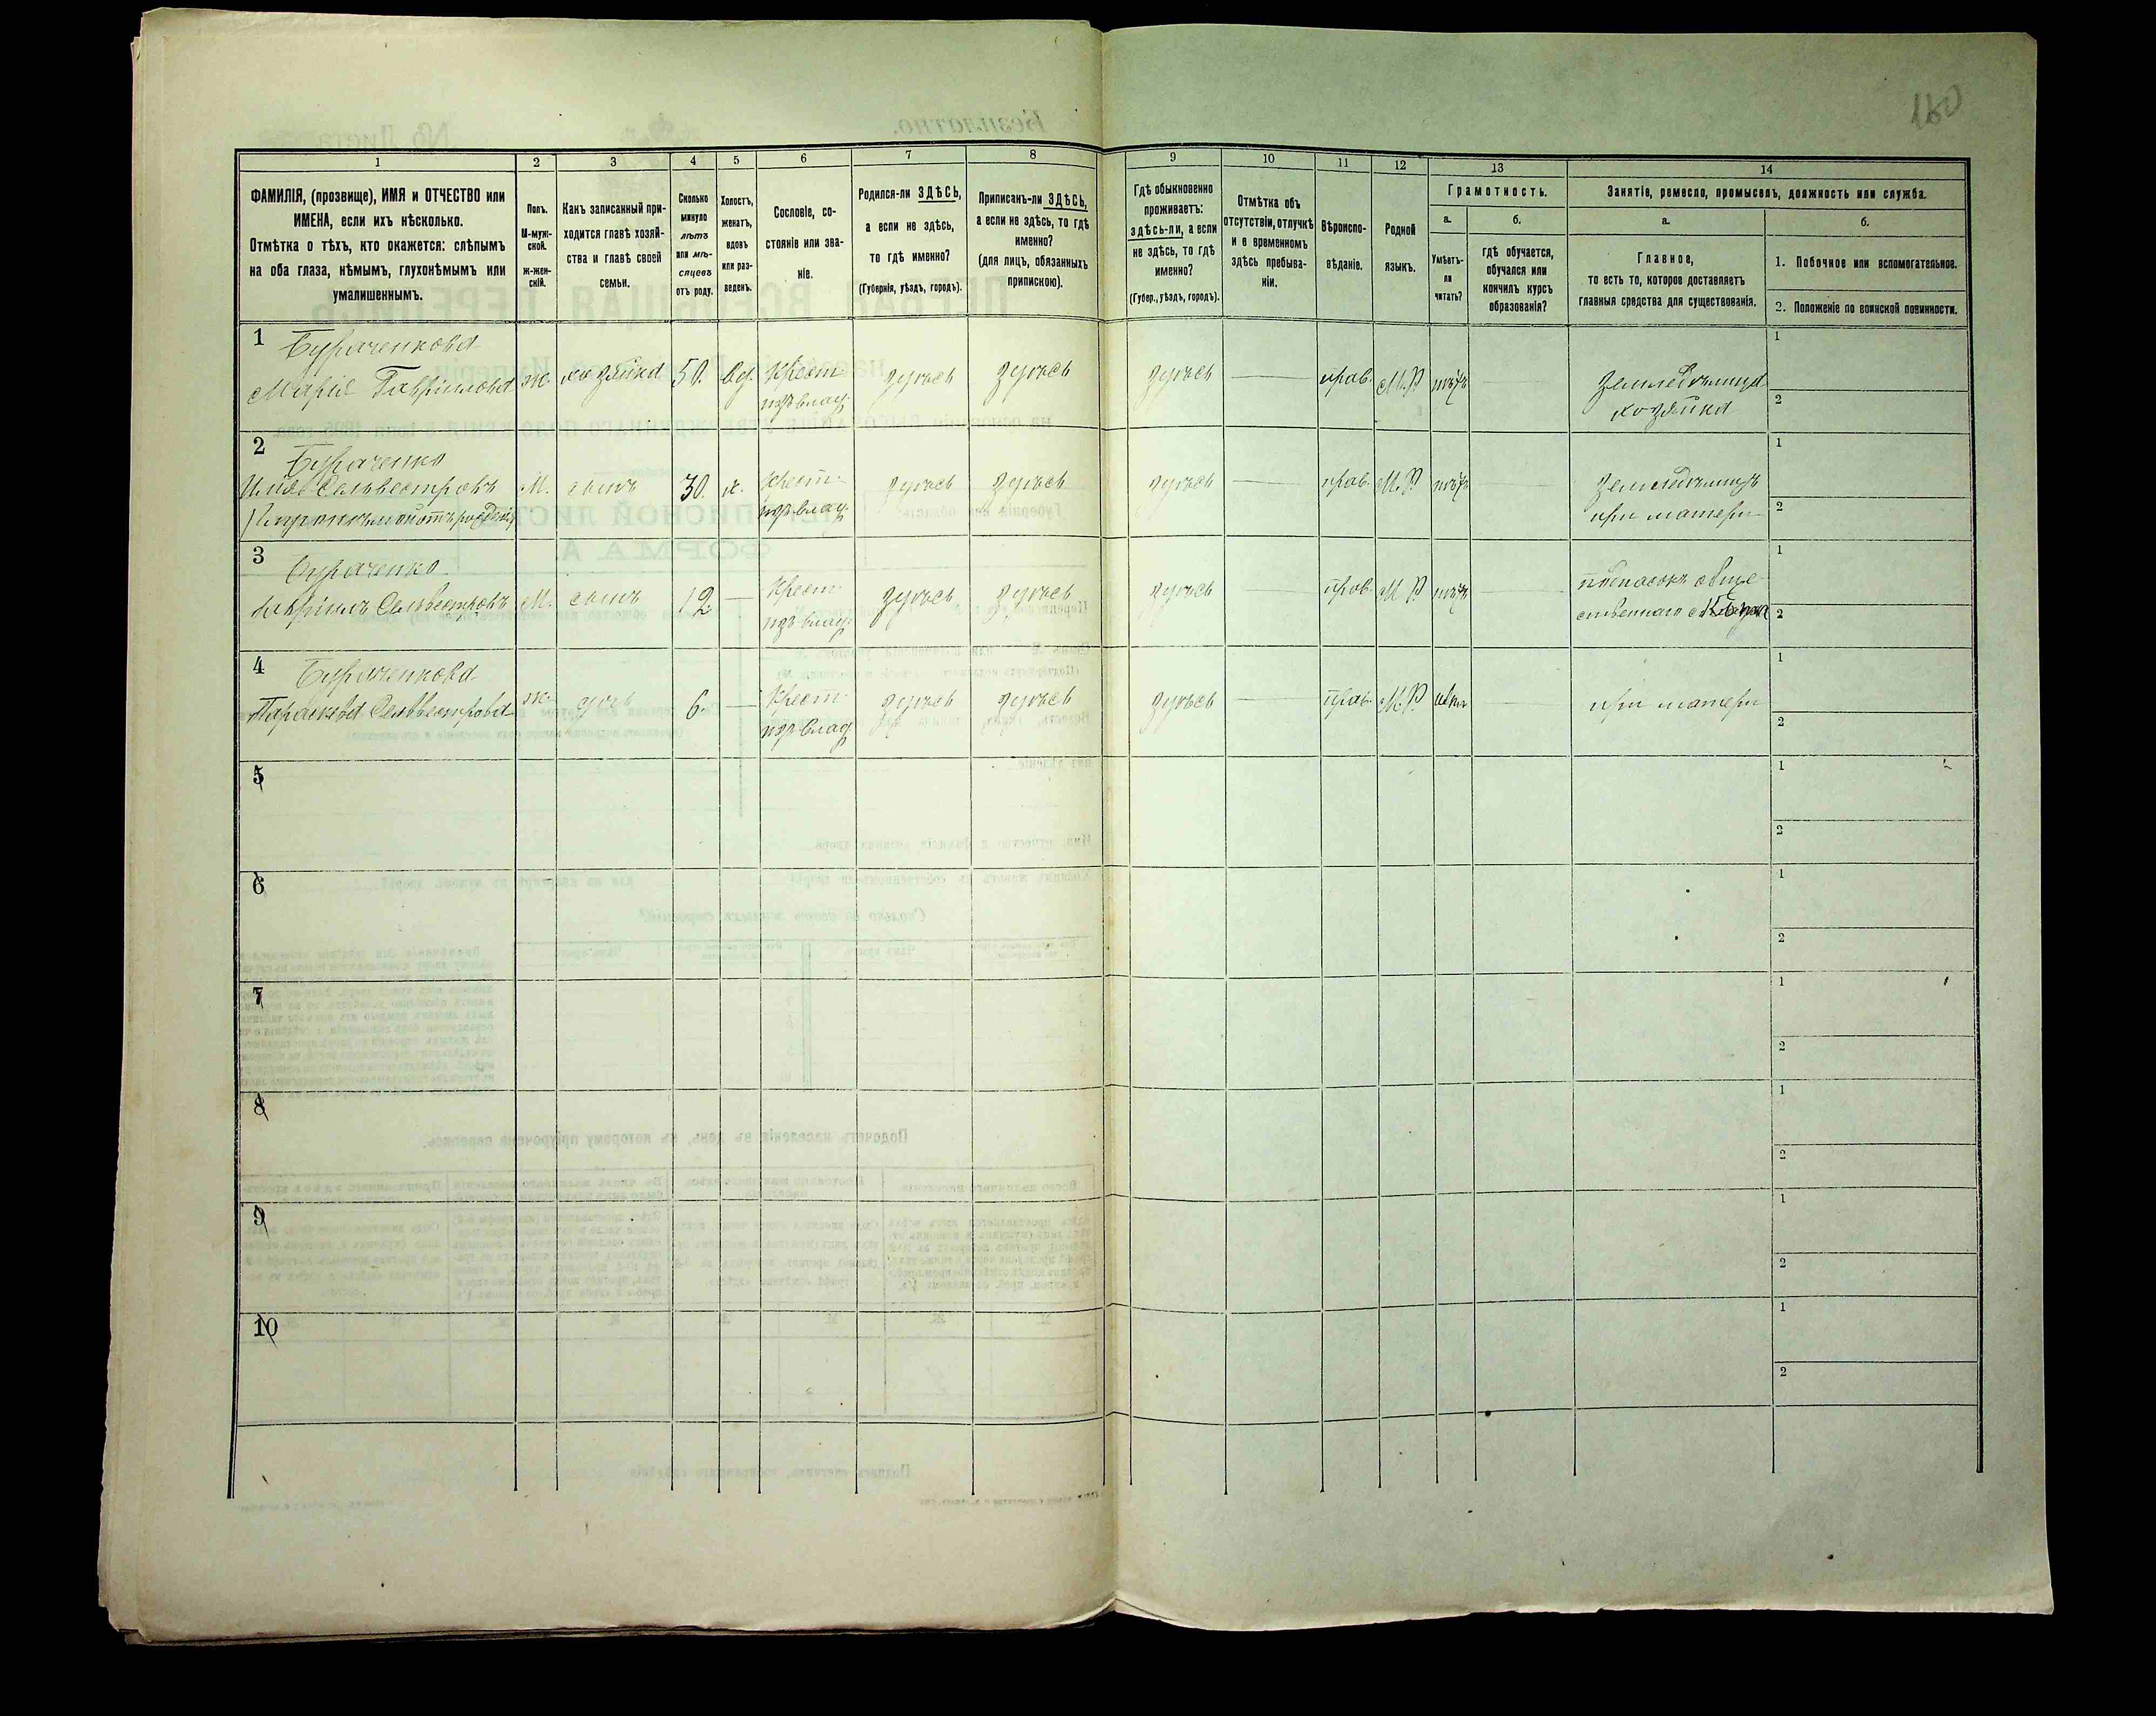 160
1 2 3 4 5 6 7 8 9 10 11 12 13 14
ФАМИЛІЯ, (прозвище), ИМЯ и ОТЧЕСТВО или
ИМЕНА, если ихъ нѣсколько.
Отмѣтка о тѣхъ, кто окажется: слѣпымъ
на оба глаза, нѣмымъ, глухонѣмымъ или
умалишеннымъ.
Полъ.
М-муж-
ской.
ж-жен-
скій.
Какъ записанный при-
ходится главѣ хозяй-
ства и главѣ своей
семьи.
Сколько
минуло
лѣтъ
или мѣ-
сяцевъ
отъ роду.
Холостъ,
женатъ,
вдовъ
или раз-
веденъ.
Сословіе, со-
стояніе или зва-
ніе.
Родился-ли ЗДѢСЬ,
а если не здѣсь,
то гдѣ именно?
(Губернія, уѣздъ, городъ).
Приписанъ-ли ЗДѢСЬ,
а если не здѣсь, то гдѣ
именно?
(для лицъ, обязанныхъ
припискою).
Гдѣ обыкновенно
проживаетъ:
здѣсь-ли, а если
не здѣсь, то гдѣ
именно?
(Губер., уѣздъ, городъ).
Отмѣтка объ
отсутствіи, отлучкѣ
и о временномъ
здѣсь пребыва-
ніи.
Вѣроиспо-
вѣданіе.
Родной
языкъ.
Грамотность.
а.
Умѣетъ-
ли
читать?
б.
гдѣ обучается,
обучался или
кончилъ курсъ
образованія?
Занятіе, ремесло, промыселъ, должность или служба.
а.
Главное,
то есть то, которое доставляетъ
главныя средства для существованія.
б.
1. Побочное или вспомогательное.
2. Положеніе по воинской повинности.
1 Бураченкова
Марія Гаврілова ж. хозяйка 50. вд. Крест. здѣсь здѣсь здѣсь прав. М.Р. нѣтъ Земледѣлица 1
изъ влад. хозяйка 2
2 Бураченко
Сельвестровъ М. сынъ 30. х. Крест. здѣсь здѣсь здѣсь прав. М.Р. нѣтъ Земледѣлицъ 1
изъ влад. при матери 2
3 Бураченко
Гавріилъ Сельвестровъ М. сынъ 12 Крест. здѣсь здѣсь здѣсь прав. М.Р. нѣтъ обще- 1
изъ влад. ственнаго 2
4 Бураченкова
Параскева Сельвестрова ж. дочь 6. Крест. здѣсь здѣсь здѣсь прав. М.Р. нѣтъ при матери 1
изъ влад. 2
5 1
2
6 1
2
7 1
2
8 1
2
9 1
2
10 1
2